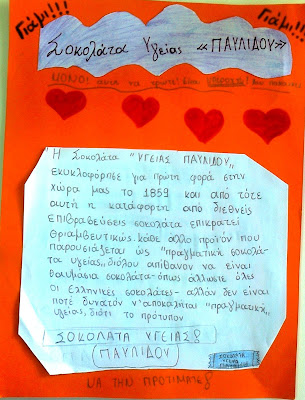 Γιάμι!!!
Γιάμι!!!
Σοκολάτα Υγείας «ΠΑΥΛΙΔΟΥ»
ΜΟΝΟ!
Η Σοκολάτα "ΥΓΕΙΑΣ ΠΑΥΛΙΔΟΥ,,
εκυκλοφόρησε για πρώτη φορά στην
χώρα μας το 1859 και από τότε
αυτή η κατάφορτη από διεθνείς
επιβραβεύσεις σοκολάτα επικρατεί
θριαμβευτικώς. κάθε άλλο προϊόν που
παρουσιάζεται ώς "πραγματική σοκολά-
τα υγείας,, διόλου απίθανον να είναι
θαυμάσια σοκολάτα-όπως άλλωστε όλες
οι Ελληνικες σοκολάτες- αλλάν δεν είναι
ποτέ δυνατόν ν'αποκαλήται "πραγματική,,
υγείας, διότι το πρότυπον
ΣΟΚΟΛΑΤΑ ΥΓΕΙΑΣ
ΠΑΥΛΙΔΟΥ
ΣΟΚΟΛΑΤΑ
ΥΓΕΙΑΣ
ΠΑΥΛΙΔΟΥ
ΝΑ ΤΗΝ ΠΡΟΤΙΜΑΤΕ